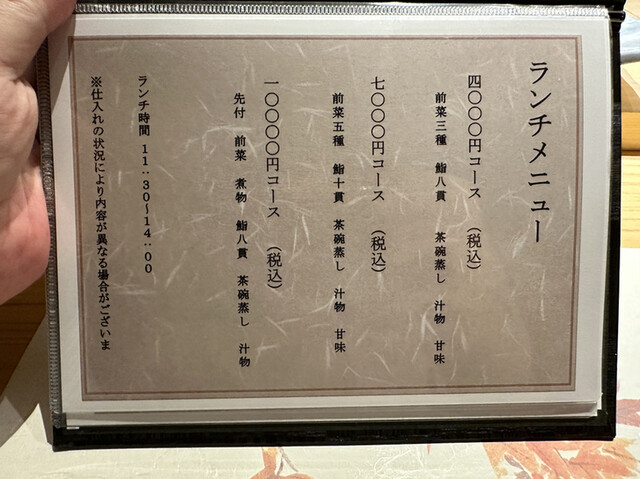 ランチメニュー
四〇〇〇円コース （税込）
前菜三種 鮨八貫 茶碗蒸し 汁物 甘味
七〇〇〇円コース （税込）
前菜五種 鮨十貫 茶碗蒸し 汁物 甘味
一〇〇〇〇円コース （税込）
先付 前菜 煮物 鮨八貫 茶碗蒸し 汁物
ランチ時間 11：30～14：00
※仕入れの状況により内容が異なる場合がございま